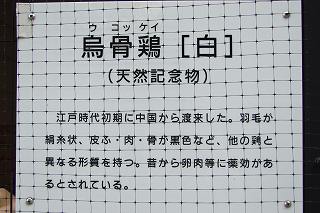 ウコッケイ
烏骨鶏［白］
（天然記念物）
江戸時代初期に中国から渡来した。羽毛が
絹糸状、皮ふ・肉・骨が黒色など、他の鶏と
異なる形質を持つ。昔から卵肉等に薬効があ
るとされている。